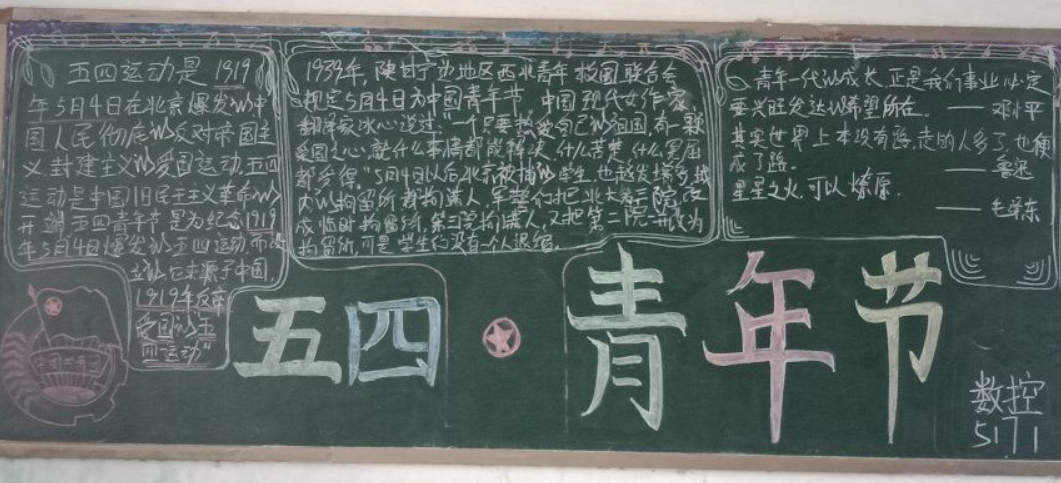 五四运动是 1919
年5月4日在北京爆发的中
国人民彻底的反对帝国主
义、封建主义的爱国运动,五四
运动是中国旧民主主义革命的
开端,五四青年节是为纪念1919
年5月4日爆发的五四运动而设
立的,它来源于中国,
1919年反帝
爱国的"五
四运动"
1939年,陕甘宁边地区西北青年救国联合会
规定5月4日为中国青年节。中国现代女作家、
翻译家冰心说过:"一个只要热爱自己的祖国,有一颗
爱国之心,就什么事情都能解决,什么苦楚,什么冤屈
都受得。"5月4日以后北京被捕的学生,也越发增多,城
内的拘留所都拘满人,军警们把北大第三院,改
成临时拘留所,第三院拘满人,又把第二院一并改为
拘留所,可是学生们没有一个退缩。
青年一代的成长,正是我们事业必定
要兴旺发达的希望所在。 ——邓小平
其实世界上本没有路,走的人多了,也便
成了路。 ——鲁迅
星星之火,可以燎原。
——毛泽东
五四·青年节
中国共青团
数控
5171